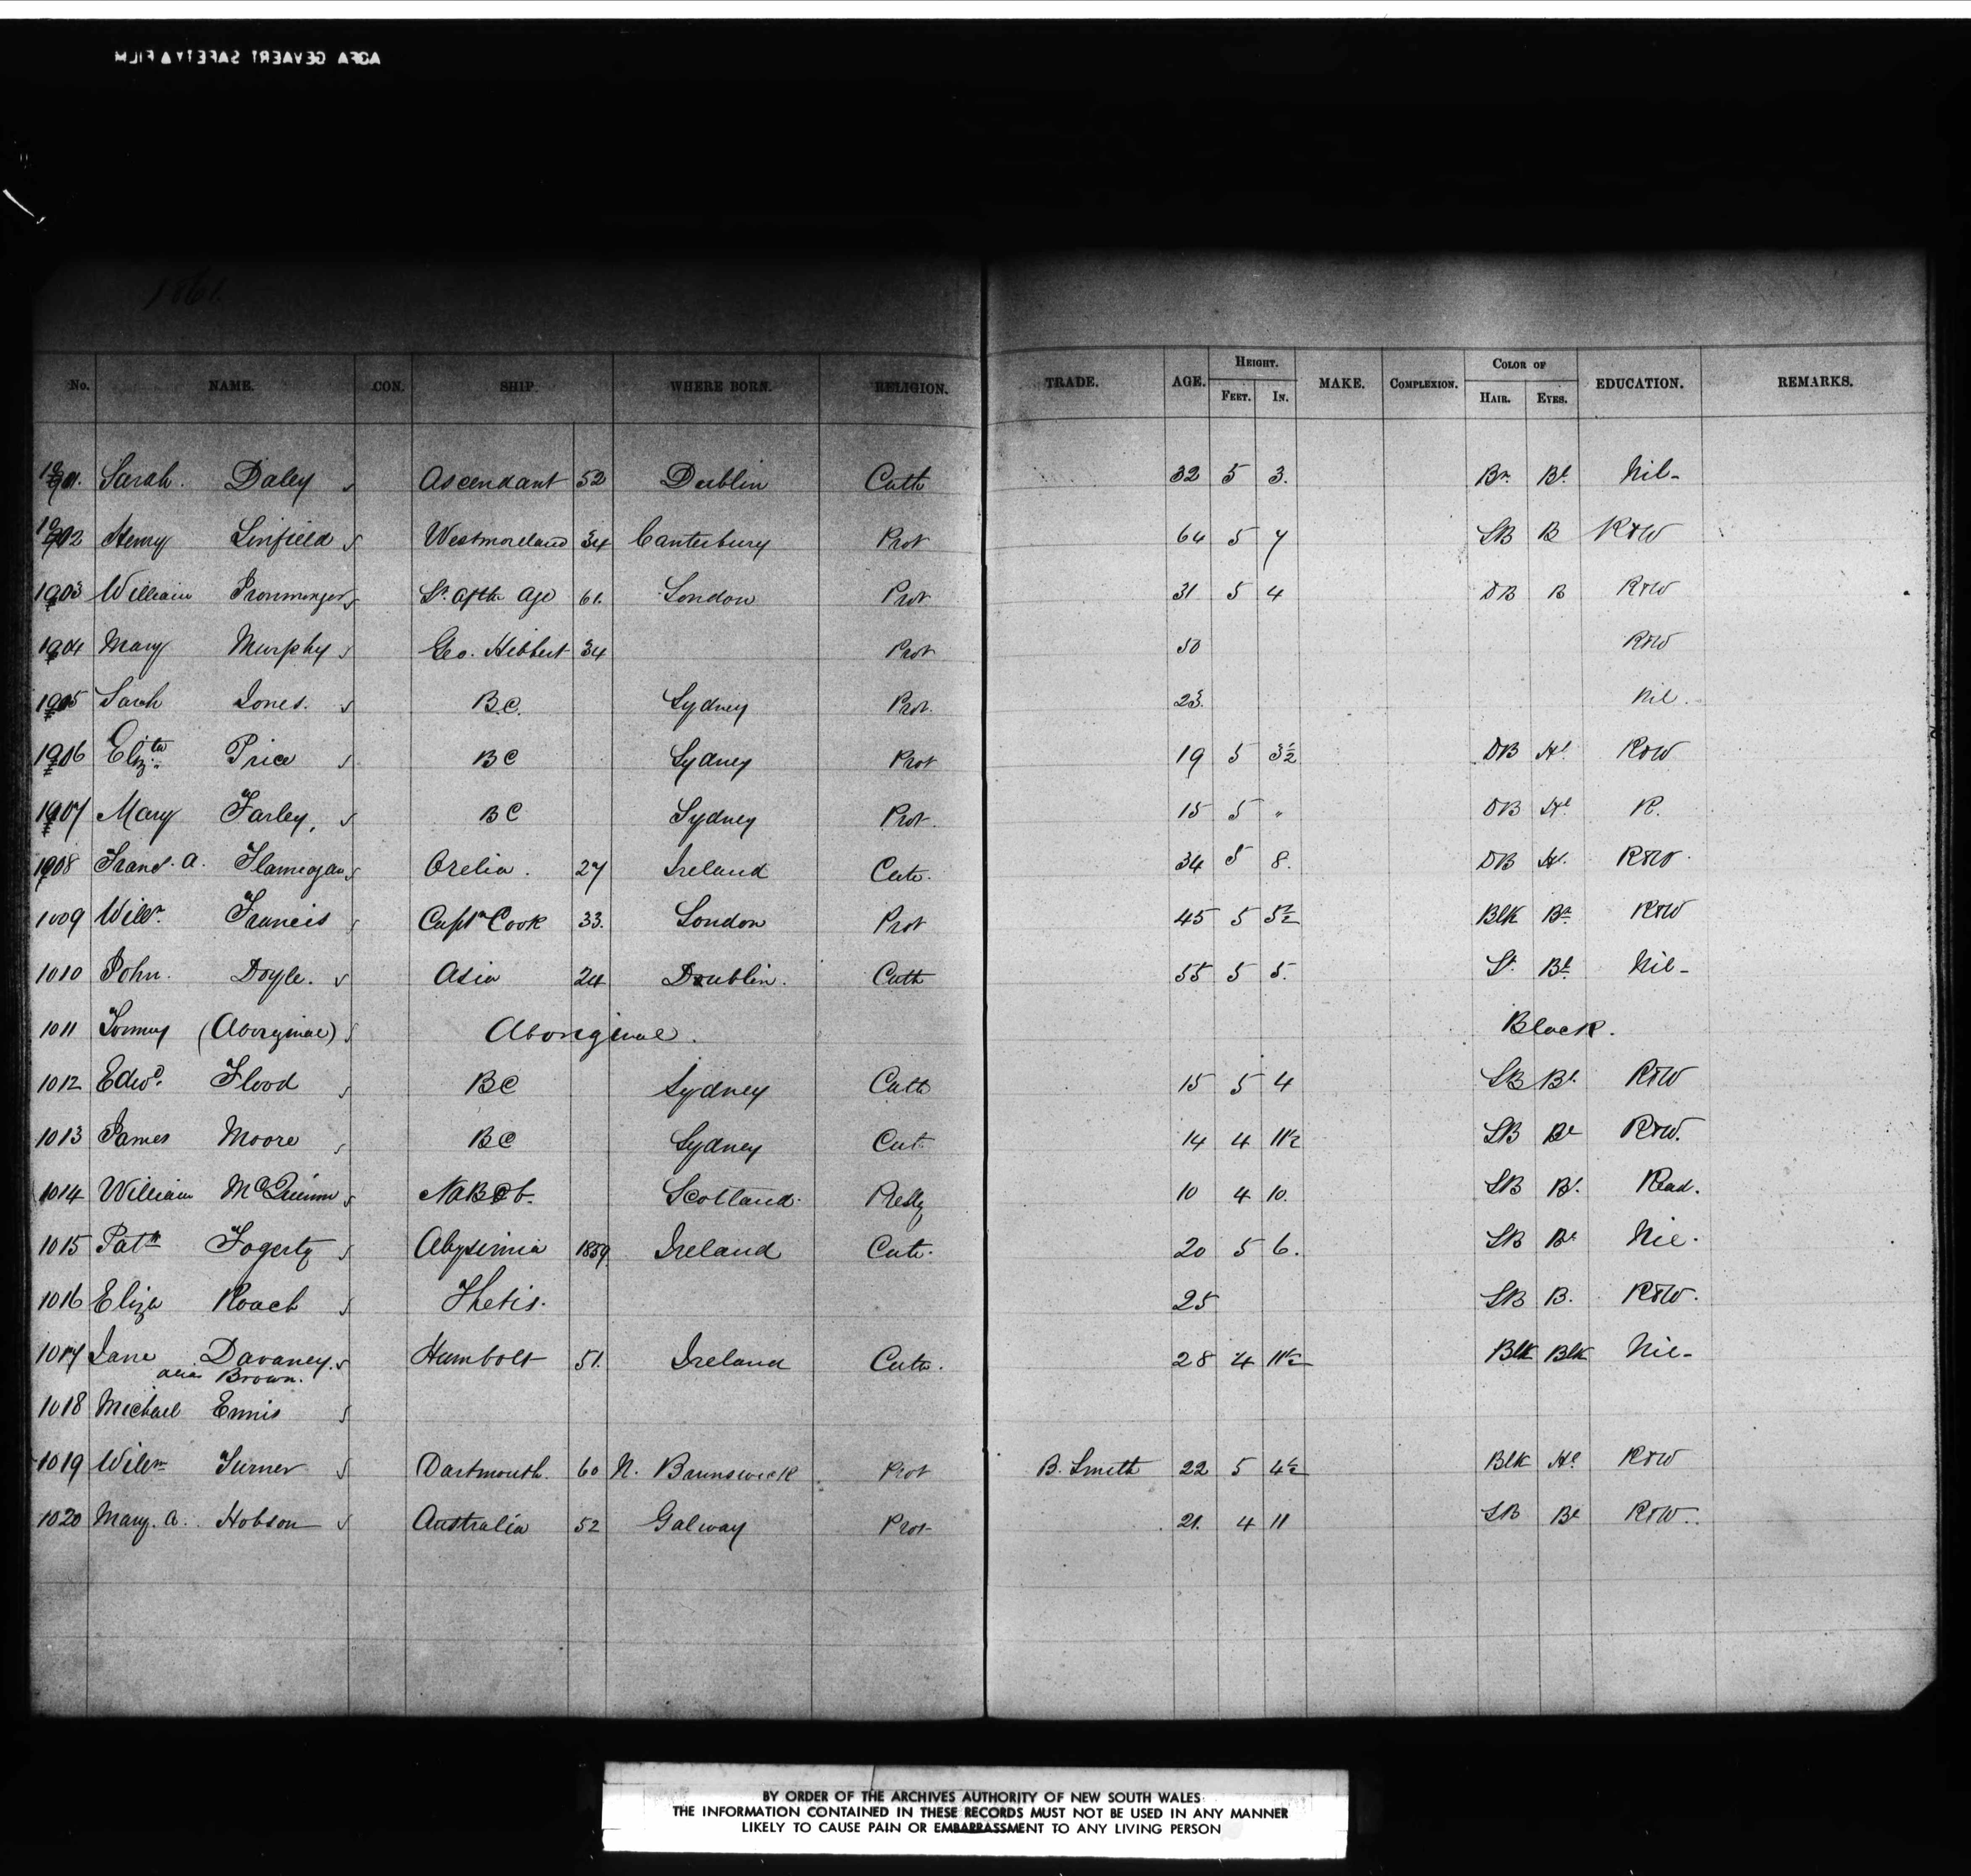 AGFA GEVAERT SAFETY FILM
1861.
No. NAME. CON. SHIP. WHERE BORN. RELIGION. TRADE. AGE. HEIGHT. FEET. IN. MAKE. COMPLEXION. COLOR OF HAIR. EYES. EDUCATION. REMARKS.
1001. Sarah Daley Ascendant 52 Dublin Cath 32 5 3. Bn. Bl. Nil-
1002 Henry Linfield Westmoreland 34 Canterbury Prot 64 5 7 SB B R&W
1003 William Ironmonger 61. London Prot 31 5 4 DB B R&W
1004 Mary Murphy Geo. Hibbert 34 Prot 50 R&W
1005 Sarah Jones. B.C. Sydney Prot. 23. Nil.
1006 Eliz.th Price BC Sydney Prot 19 5 3½ DB Hl. R&W
1007 Mary Farley, BC Sydney Prot. 15 5 " DB Hl R.
1008 A. Flannagan Orelia. 27 Ireland Cath. 34 5 8. DB Hl. R&W.
1009 Willm. Francis Captn Cook 33. London Prot 45 5 5½ Blk Bn R&W
1010 John. Doyle. Asia 24 Dublin. Cath 55 5 5. Bl. Nil-
1011 Tommy (Aboriginal) Aboriginal. Black.
1012 Edwd. Flood BC Sydney Cath 15 5 4 SB Bl. R&W
1013 James Moore BC Sydney Cat. 14 4 11½ SB Bl R&W.
1014 William McQuinn Scotland. 10 4 10. SB Bl. Read.
1015 Patk Fogerty Abysinnia 1859 Ireland Cath. 20 5 6. SB Bl Nil.
1016 Eliza Roach Thetis. 25 SB B. R&W.
1017 Jane Davaney. Humbolt 51. Ireland Cath. 28 4 11½ Blk Blk Nil-
alias Brown.
1018 Michael Ennis
1019 Willm Turner Dartmouth. 60 N. Brunswick Prot B. Smith 22 5 4½ Blk Hl R&W
1020 Mary. A. Hobson Australia 52 Galway Prot 21. 4 11 SB Bl R&W.
BY ORDER OF THE ARCHIVES AUTHORITY OF NEW SOUTH WALES
THE INFORMATION CONTAINED IN THESE RECORDS MUST NOT BE USED IN ANY MANNER
LIKELY TO CAUSE PAIN OR EMBARRASSMENT TO ANY LIVING PERSON